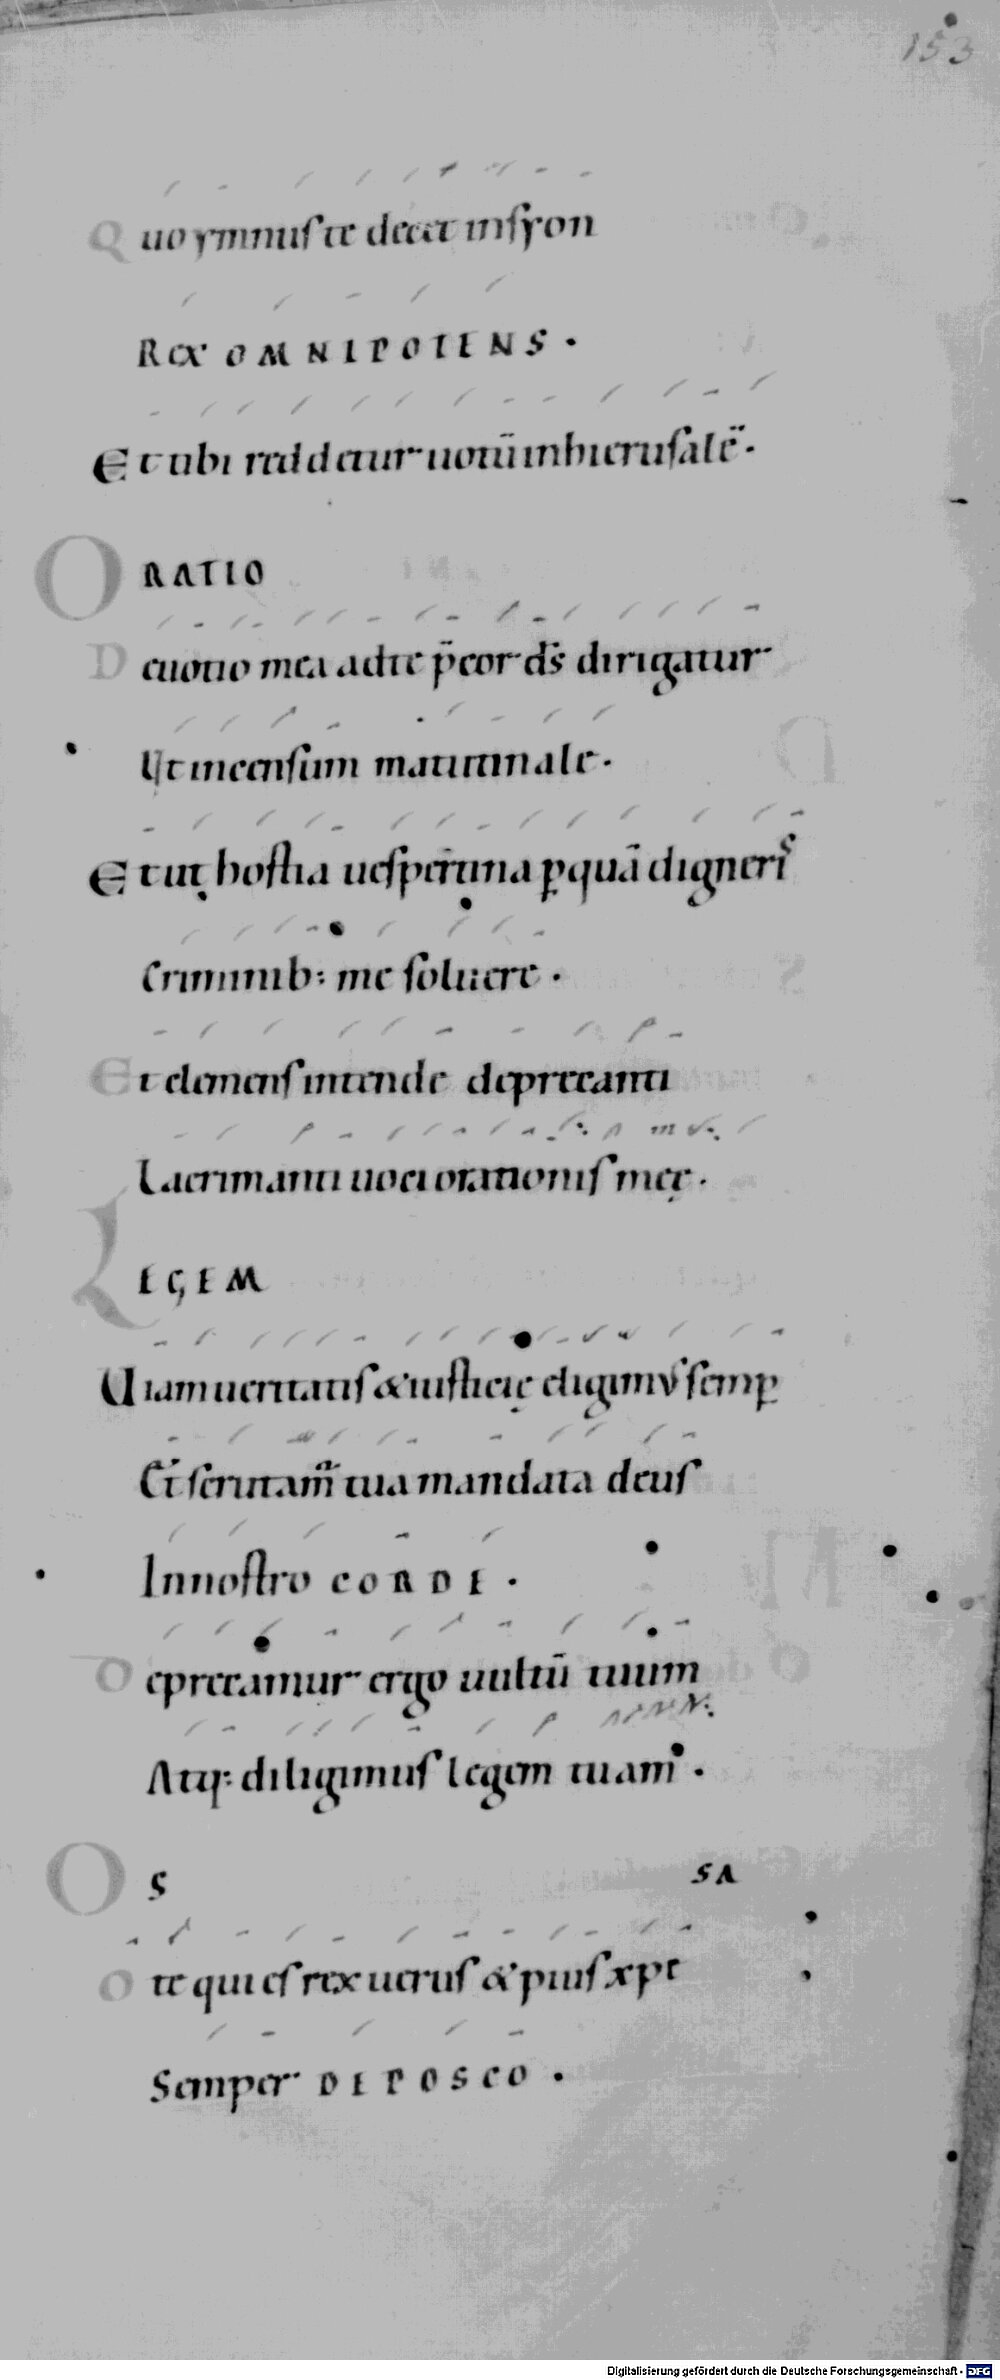 153
Quo ymnus te decet in syon
Rex OMNIPOTENS.
Et tibi reddetur uotū in hierusalē.
ORATIO
Deuotio mea ad te p̄cor ds̄ dirigatur
Ut incensum matutinale.
Et ut hostia uespertina ꝑ quā digneris
Criminib: me soluere.
Et clemens intende deprecanti
Lacrimanti uoci orationis meę.
LEGEM
Uiam ueritatis & iusticię eligimus semꝑ
Et scrutam̄ tua mandata deus
In nostro CORDE.
Deprecamur ergo uultū tuum
Atq: diligimus legem tuam.
OS SA
O te qui es rex uerus & pius xpe
Semper DEPOSCO.
Digitalisierung gefördert durch die Deutsche Forschungsgemeinschaft - DFG